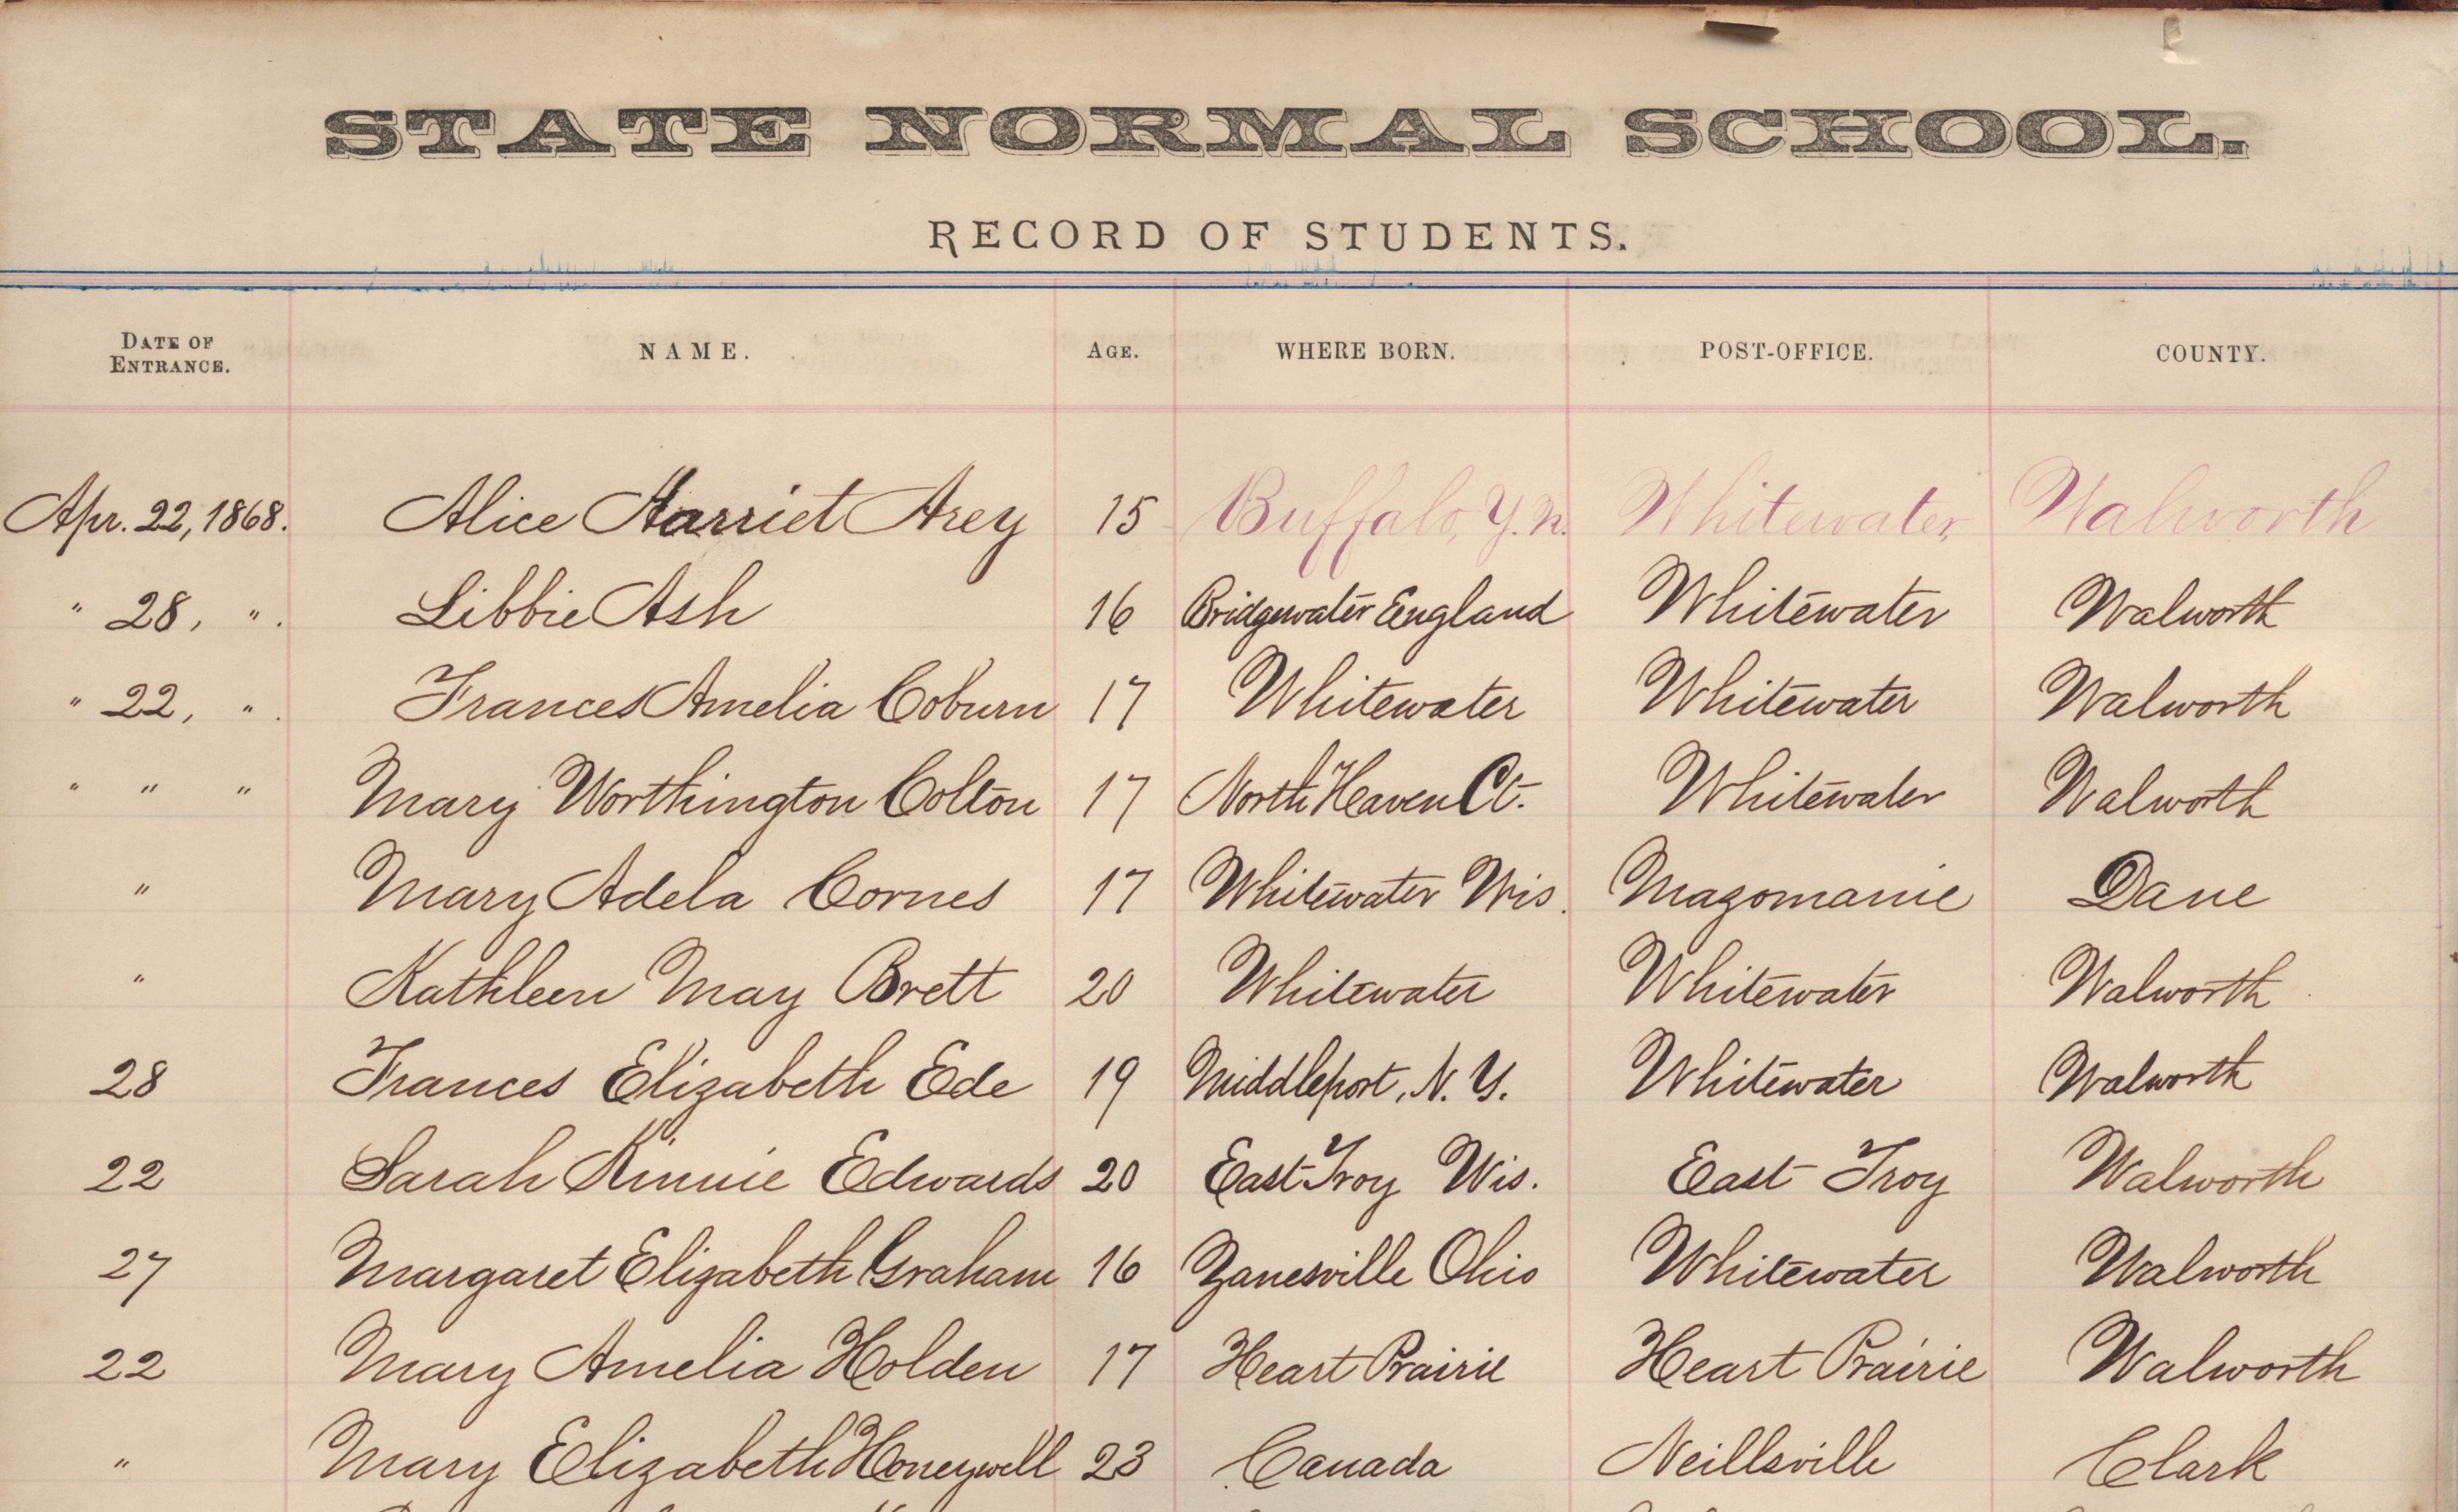 STATE NORMAL SCHOOL.
RECORD OF STUDENTS.
DATE OF ENTRANCE. NAME. AGE. WHERE BORN. POST-OFFICE. COUNTY.
Apr. 22, 1868. Alice Harriet Arey 15 Buffalo, Y.N. Whitewater, Walworth
" 28, ". Libbie Ash 16 Bridgewater England Whitewater Walworth
" 22, ". Frances Amelia Coburn 17 Whitewater Whitewater Walworth
" " " Mary Worthington Colton 17 North Haven Ct. Whitewater Walworth
" Mary Adela Cornes 17 Whitewater Wis. Mazomanie Dane
" Kathleen May Brett 20 Whitewater Whitewater Walworth
28 Frances Elizabeth Ede 19 Middleport, N.Y. Whitewater Walworth
22 Sarah Edwards 20 East Troy Wis. East Troy Walworth
27 Margaret Elizabeth Graham 16 Zanesville Ohio Whitewater Walworth
22 Mary Amelia Holden 17 Heart Prairie Heart Prairie Walworth
" Mary Elizabeth Honeywell 23 Canada Neillsville Clark